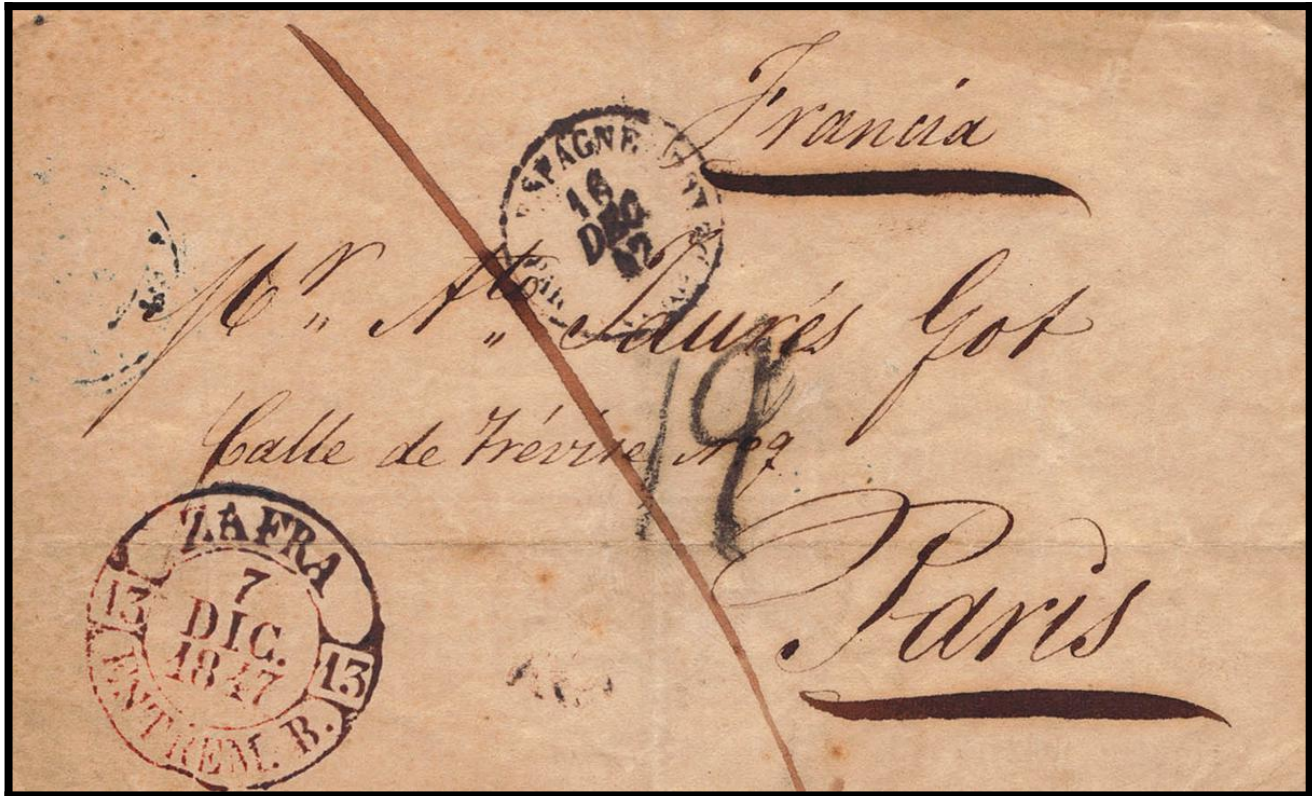 Francia
ESPAGNE
16
DEC
47
Mr. „ Ato „ Jaurés Got
Calle de Trévise No 9
19
Paris
ZAFRA
13
7
DIC.
1847
13
ESTREM. B.